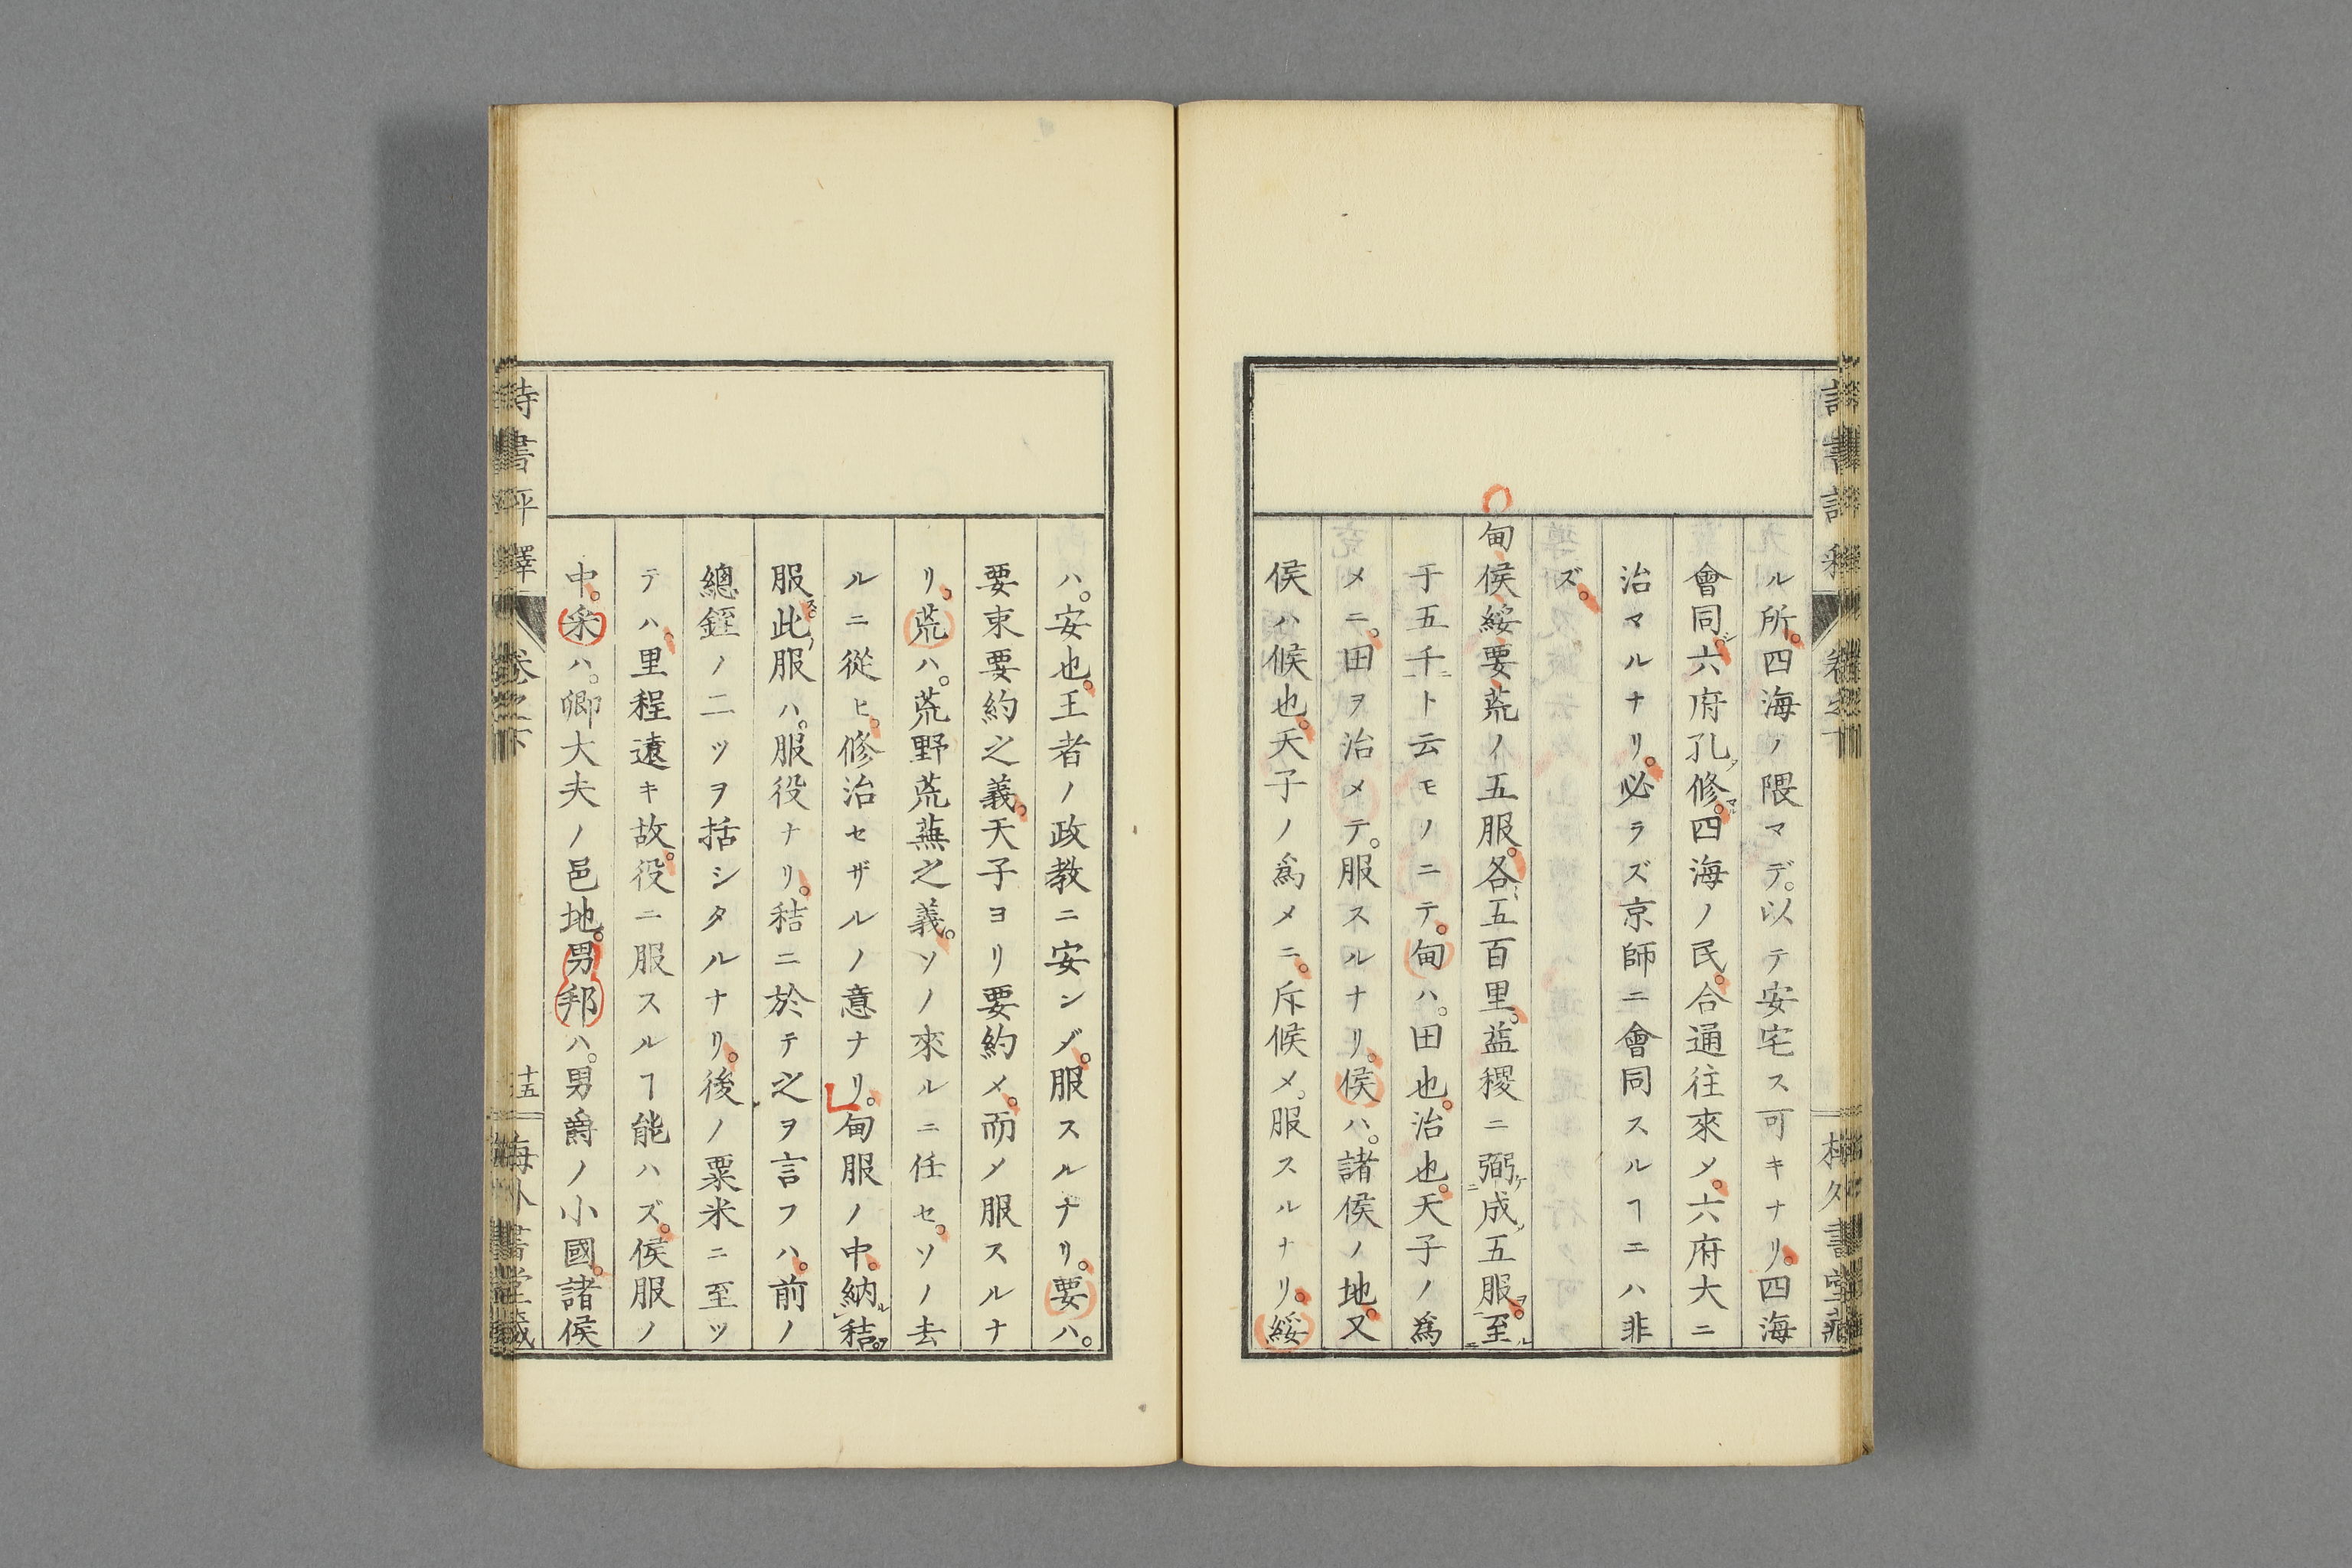 ル所。四海ノ隈マデ。以テ安宅ス可キナリ。四海
會同シ。六府孔ダ修マル。四海ノ民。合通往來メ。六府大ニ
治マルナリ。必ラズ京師ニ會同スルヿニハ非
ズ。
甸侯綏要荒ノ五服。各〻五百里。葢稷ニ弼ケ成ノ五服ヲ。至ル
于五千ト云モノニテ。甸ハ。田也。治也。天子ノ爲
メニ。田ヲ治メテ。服スルナリ。侯ハ。諸侯ノ地。又
侯ハ候也。天子ノ爲メニ。斥候メ。服スルナリ。綏
ハ。安也。王者ノ政教ニ安ンメ。服スルナリ。要ハ。
要束要約之義。天子ヨリ要約メ。而メ服スルナ
リ。荒ハ。荒野荒蕪之義。ソノ來ルニ任セ。ソノ去
ルニ從ヒ。修治セザルノ意ナリ。甸服ノ中。納ル秸ヲ
服ス。此ノ服ハ。服役ナリ。秸ニ於テ之ヲ言フハ。前ノ
總銍ノ二ツヲ括シタルナリ。後ノ粟米ニ至ツ
テハ。里程遠キ故。役ニ服スルヿ能ハズ。侯服ノ
中。采ハ。卿大夫ノ邑地。男邦ハ。男爵ノ小國。諸侯
詩書評釋
卷之下
十五